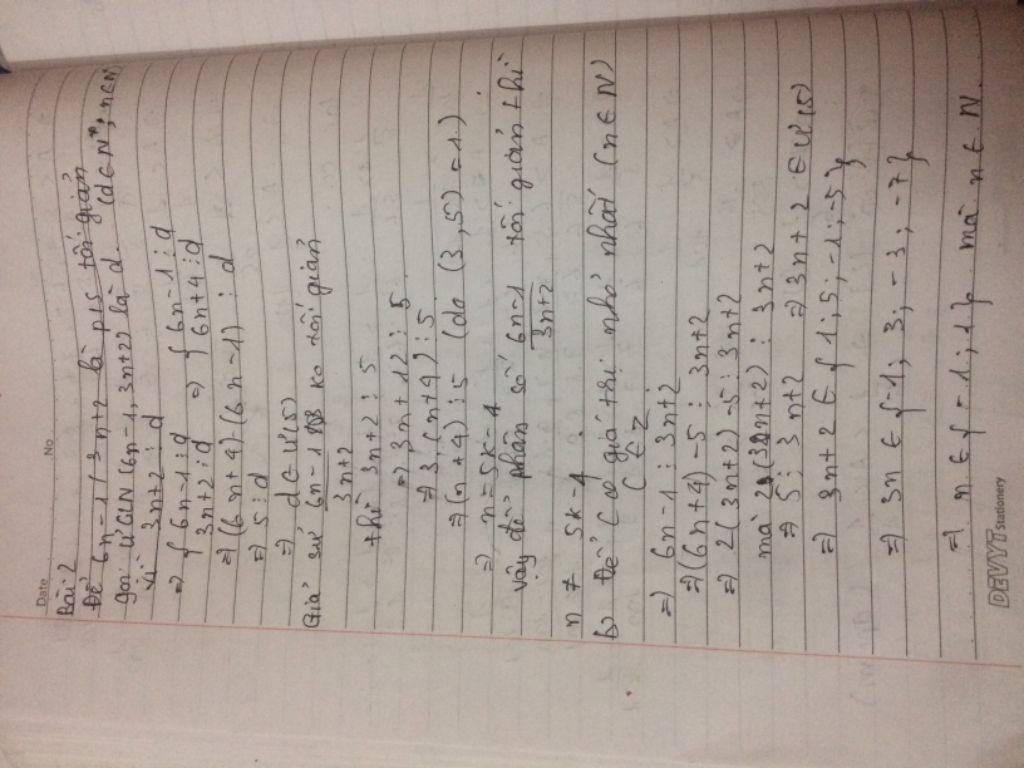 Date No
Bài 2
Để 6n-1 / 3n+2 là p/s tối giản
gọi ƯCLN (6n-1, 3n+2) là d. (d ∈ N*; n ∈ N)
Vì 3n+2 ⋮ d
⇒ { 6n-1 ⋮ d 3n+2 ⋮ d ⇒ { 6n-1 ⋮ d 6n+4 ⋮ d
⇒ (6n+4)-(6n-1) ⋮ d
⇒ 5 ⋮ d
⇒ d ∈ Ư(5)
Giả sử 6n-1/3n+2 ko tối giản
thì 3n+2 ⋮ 5
⇒ 3n+12 ⋮ 5
⇒ 3.(n+4) ⋮ 5
⇒ (n+4) ⋮ 5 (do (3,5)=1)
⇒ n=5k-4
vậy để phân số 6n-1/3n+2 tối giản thì
n ≠ 5k-4
b) Để C có giá trị nhỏ nhất (n ∈ N)
C ∈ Z
⇒ 6n-1 ⋮ 3n+2
⇒ (6n+4)-5 ⋮ 3n+2
⇒ 2(3n+2)-5 ⋮ 3n+2
mà 2(3n+2) ⋮ 3n+2
⇒ 5 ⋮ 3n+2 ⇒ 3n+2 ∈ Ư(5)
⇒ 3n+2 ∈ {1; 5; -1; -5}
⇒ 3n ∈ {-1; 3; -3; -7}
⇒ n ∈ {-1; 1} mà n ∈ N.
DEVYT Stationery